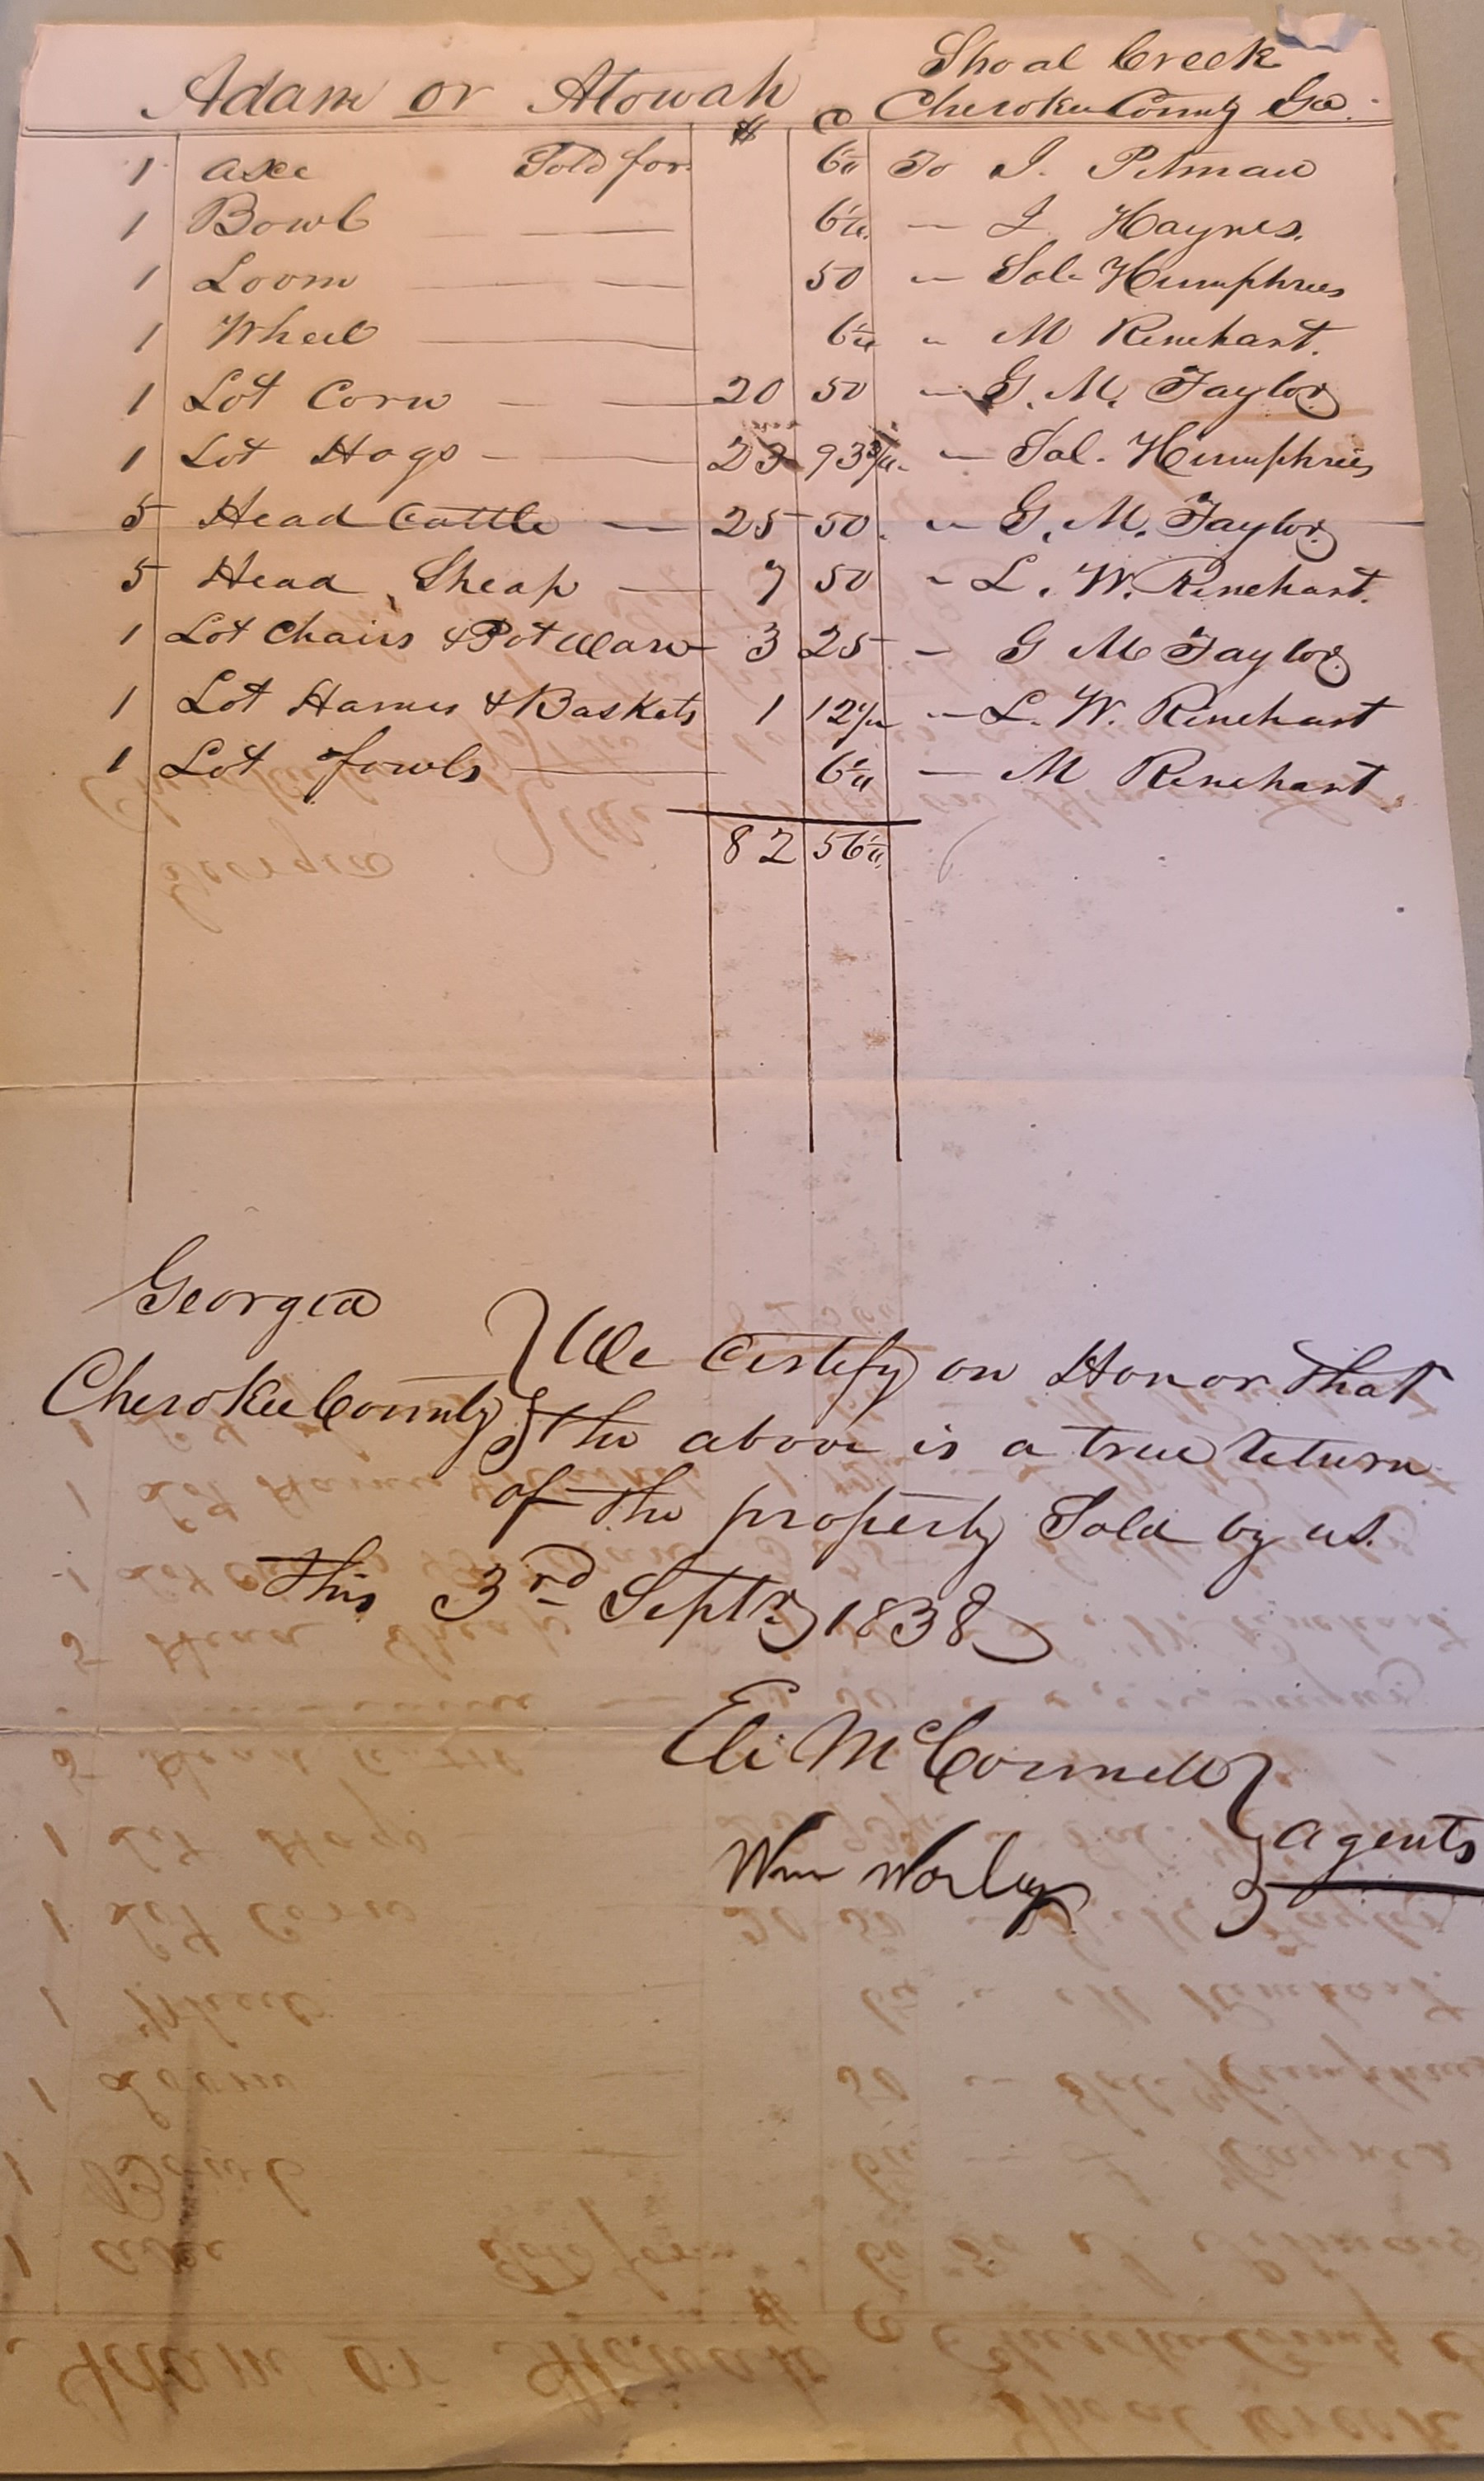 Shoal Creek
Adam or Atowah Cherokee County Ga.
$ C
1 axe Sold for 6¼ To I. Pitman
1 Bowl — — 6¼ — I Haynes.
1 Loom — — 50 — Sol. Humphries
1 Wheel — 6¼ " M Rinehart.
1 Lot Corn — — 20 50 — G. M. Taylor
1 Lot Hogs — — 23 93¾ — Sol. Humphries
5 Head Cattle — 25 50 — G. M. Taylor
5 Head Sheap — 7 50 — L. W. Rinehart.
1 Lot Chairs & Pot Ware 3 25 — G M Taylor
1 Lot Hames & Baskets 1 12½ — L. W. Rinehart
1 Lot fowls — 6¼ — M Rinehart
82 56¼
Georgia } We Certify on Honor that
Cherokee County } the above is a true Return
of the property Sold by us.
This 3rd Septr 1838
Eli McConnell }
Wm Worley } agents